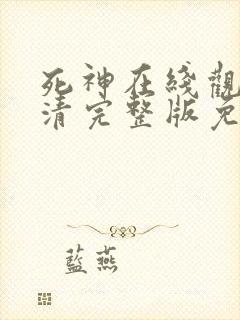 死神在綫觀
清完整版免
藍燕